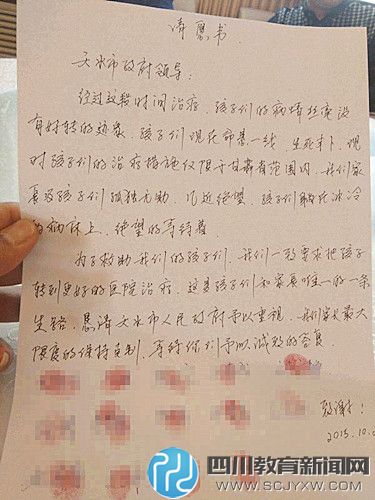 请愿书
天水市政府领导：
经过这段时间治疗，孩子们的病情丝毫没
有好转的迹象，孩子们现在命悬一线，生死未卜，现
时孩子们的治疗措施仅限于甘肃省范围内，我们家
长及孩子们孤独无助，几近绝望，孩子们躺在冰冷
的病床上，绝望的等待着
为了救助我们的孩子们，我们一致要求把孩子
转到更好的医院治疗，这是孩子们和家长唯一的一条
生路，恳请天水市人民政府予以重视，我们家长最大
限度的保持克制，等待你们予以诚恳的答复
致谢！
2015.10.
四川教育新闻网
WWW.SCJYXW.COM